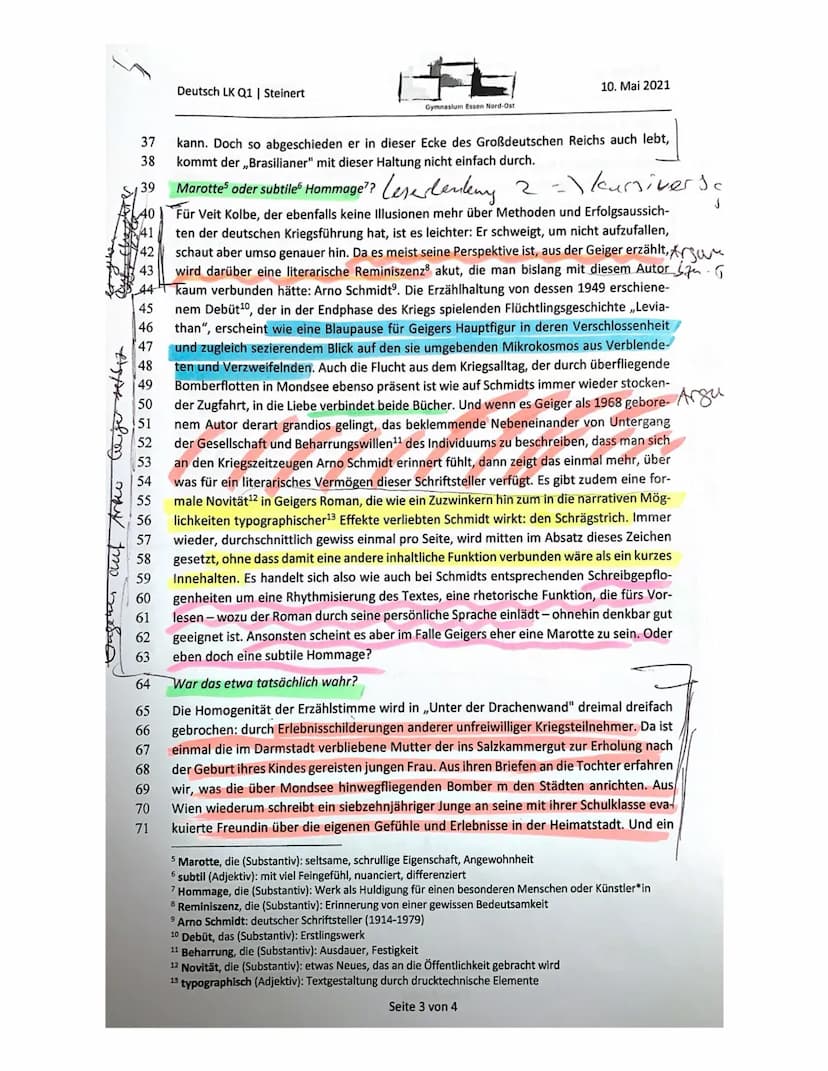 Deutsch LK Q1 | Steinert
Gymnasium Essen Nord-Ost
10. Mai 2021
37 kann. Doch so abgeschieden er in dieser Ecke des Großdeutschen Reichs auch lebt,
38 kommt der „Brasilianer" mit dieser Haltung nicht einfach durch.
39 Marotte⁵ oder subtile⁶ Hommage⁷? Leserlenkung 2 =>
40 Für Veit Kolbe, der ebenfalls keine Illusionen mehr über Methoden und Erfolgsaussich-
41 ten der deutschen Kriegsführung hat, ist es leichter: Er schweigt, um nicht aufzufallen,
42 schaut aber umso genauer hin. Da es meist seine Perspektive ist, aus der Geiger erzählt,
43 wird darüber eine literarische Reminiszenz⁸ akut, die man bislang mit diesem Autor
44 kaum verbunden hätte: Arno Schmidt⁹. Die Erzählhaltung von dessen 1949 erschiene-
45 nem Debüt¹⁰, der in der Endphase des Kriegs spielenden Flüchtlingsgeschichte „Levia-
46 than", erscheint wie eine Blaupause für Geigers Hauptfigur in deren Verschlossenheit
47 und zugleich sezierendem Blick auf den sie umgebenden Mikrokosmos aus Verblende-
48 ten und Verzweifelnden. Auch die Flucht aus dem Kriegsalltag, der durch überfliegende
49 Bomberflotten in Mondsee ebenso präsent ist wie auf Schmidts immer wieder stocken-
50 der Zugfahrt, in die Liebe verbindet beide Bücher. Und wenn es Geiger als 1968 gebore- Argu
51 nem Autor derart grandios gelingt, das beklemmende Nebeneinander von Untergang
52 der Gesellschaft und Beharrungswillen¹¹ des Individuums zu beschreiben, dass man sich
53 an den Kriegszeitzeugen Arno Schmidt erinnert fühlt, dann zeigt das einmal mehr, über
54 was für ein literarisches Vermögen dieser Schriftsteller verfügt. Es gibt zudem eine for-
55 male Novität¹² in Geigers Roman, die wie ein Zuzwinkern hin zum in die narrativen Mög-
56 lichkeiten typographischer¹³ Effekte verliebten Schmidt wirkt: den Schrägstrich. Immer
57 wieder, durchschnittlich gewiss einmal pro Seite, wird mitten im Absatz dieses Zeichen
58 gesetzt, ohne dass damit eine andere inhaltliche Funktion verbunden wäre als ein kurzes
59 Innehalten. Es handelt sich also wie auch bei Schmidts entsprechenden Schreibgepflo-
60 genheiten um eine Rhythmisierung des Textes, eine rhetorische Funktion, die fürs Vor-
61 lesen – wozu der Roman durch seine persönliche Sprache einlädt – ohnehin denkbar gut
62 geeignet ist. Ansonsten scheint es aber im Falle Geigers eher eine Marotte zu sein. Oder
63 eben doch eine subtile Hommage?
64 War das etwa tatsächlich wahr?
65 Die Homogenität der Erzählstimme wird in „Unter der Drachenwand" dreimal dreifach
66 gebrochen: durch Erlebnisschilderungen anderer unfreiwilliger Kriegsteilnehmer. Da ist
67 einmal die im Darmstadt verbliebene Mutter der ins Salzkammergut zur Erholung nach
68 der Geburt ihres Kindes gereisten jungen Frau. Aus ihren Briefen an die Tochter erfahren
69 wir, was die über Mondsee hinwegfliegenden Bomber m den Städten anrichten. Aus
70 Wien wiederum schreibt ein siebzehnjähriger Junge an seine mit ihrer Schulklasse eva-
71 kuierte Freundin über die eigenen Gefühle und Erlebnisse in der Heimatstadt. Und ein
⁵ Marotte, die (Substantiv): seltsame, schrullige Eigenschaft, Angewohnheit
⁶ subtil (Adjektiv): mit viel Feingefühl, nuanciert, differenziert
⁷ Hommage, die (Substantiv): Werk als Huldigung für einen besonderen Menschen oder Künstler*in
⁸ Reminiszenz, die (Substantiv): Erinnerung von einer gewissen Bedeutsamkeit
⁹ Arno Schmidt: deutscher Schriftsteller (1914-1979)
¹⁰ Debüt, das (Substantiv): Erstlingswerk
¹¹ Beharrung, die (Substantiv): Ausdauer, Festigkeit
¹² Novität, die (Substantiv): etwas Neues, das an die Öffentlichkeit gebracht wird
¹³ typographisch (Adjektiv): Textgestaltung durch drucktechnische Elemente
Seite 3 von 4